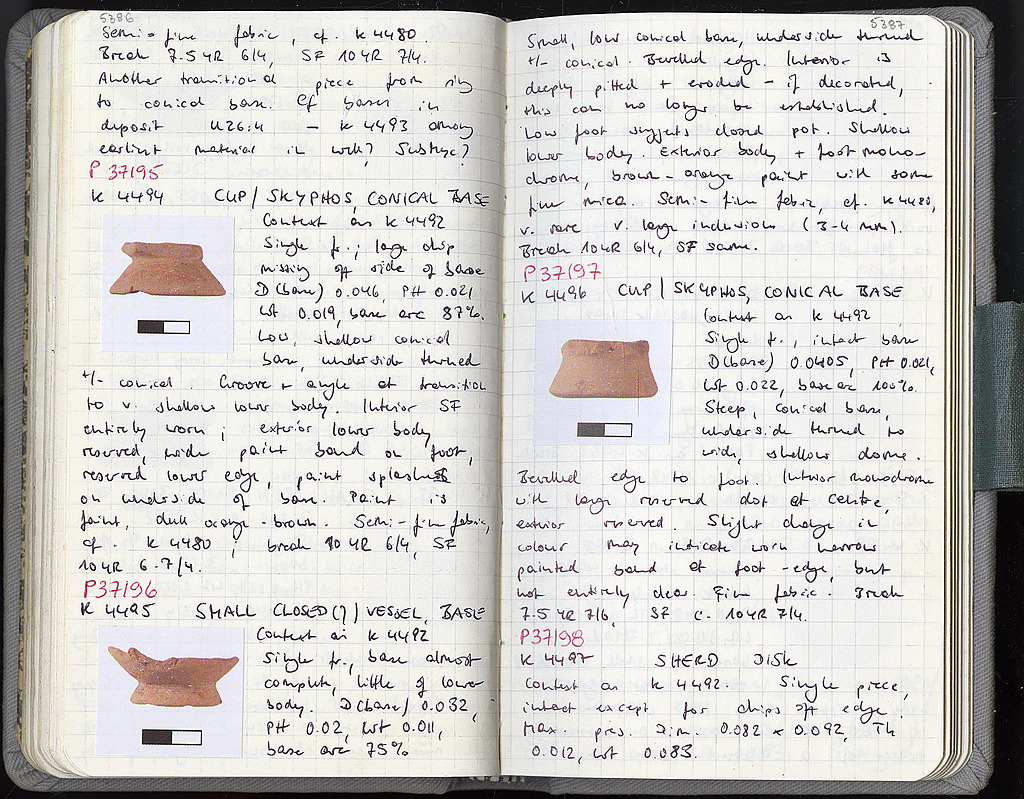 5386
Semi-fine fabric, cf. K 4480.
Break 7.5 YR 6/4, SF 10YR 7/4.
Another transitional piece from ring
to conical base. Cf bases in
deposit U26:4 — K 4493 among
earliest material in well? Subtype?
P 37195
K 4494 CUP/SKYPHOS, CONICAL BASE
Context as K 4492
Single fr.; large chip
missing off side of base
D(base) 0.046, PH 0.021
Wt 0.019, base arc 87%.
Low, shallow conical
base, underside turned
+/- conical. Groove + angle at transition
to v. shallow lower body. Interior SF
entirely worn; exterior lower body
reserved, wide paint band on foot,
reserved lower edge, paint splashes
on underside of base. Paint is
faint, dull orange-brown. Semi-fine fabric,
cf. K 4480; break 10YR 6/4, SF
10YR 6-7/4.
P37196
K 4495 SMALL CLOSED(?) VESSEL, BASE
Context as K 4492
Single fr., base almost
complete, little of lower
body. D(base) 0.032,
PH 0.02, Wt 0.011,
base arc 75%
5387
Small, low conical base, underside turned
+/- conical. Bevelled edge. Interior is
deeply pitted + eroded - if decorated,
this can no longer be established.
Low foot suggests closed pot. Shallow
lower body. Exterior body + foot mono-
chrome, brown-orange paint with some
fine mica. Semi-fine fabric, cf. K 4480,
v. rare v. large inclusions (3-4 mm).
Break 10YR 6/4, SF same.
P37197
K 4496 CUP/SKYPHOS, CONICAL BASE
Context as K 4492
Single fr., intact base
D(base) 0.0405, PH 0.021,
Wt 0.022, base arc 100%.
Steep, conical base,
underside turned to
wide, shallow dome.
Bevelled edge to foot. Interior monochrome
with large reserved dot at centre,
exterior reserved. Slight change in
colour may indicate worn narrow
painted band at foot-edge, but
not entirely clear. Fine fabric. Break
7.5 YR 7/6, SF c. 10YR 7/4.
P37198
K 4497 SHERD DISK
Context as K 4492. Single piece,
intact except for chips off edge.
Max. pres. Dim. 0.082 x 0.092, Th
0.012, Wt 0.083.